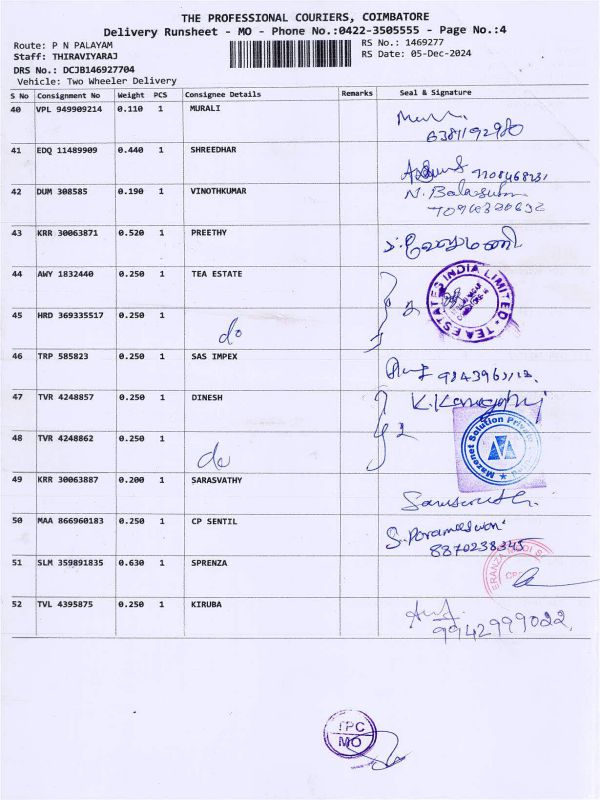 THE PROFESSIONAL COURIERS, COIMBATORE
Delivery Runsheet - MO - Phone No.:0422-3505555 - Page No.:4
Route: P N PALAYAM
Staff: THIRAVIYARAJ
RS No.: 1469277
RS Date: 05-Dec-2024
DRS No.: DCJB146927704
Vehicle: Two Wheeler Delivery
S No Consignment No Weight PCS Consignee Details Remarks Seal & Signature
40 VPL 949909214 0.110 1 MURALI
41 EDQ 11489909 0.440 1 SHREEDHAR
42 DUM 308585 0.190 1 VINOTHKUMAR N. Balasubm
43 KRR 30063871 0.520 1 PREETHY
44 AWY 1832440 0.250 1 TEA ESTATE 2 TEA ESTATES INDIA LIMITED
45 HRD 369335517 0.250 1 do
46 TRP 585823 0.250 1 SAS IMPEX
47 TVR 4248857 0.250 1 DINESH 2 Mazenet Solution Private
48 TVR 4248862 0.250 1 do
49 KRR 30063887 0.200 1 SARASVATHY
50 MAA 866960183 0.250 1 CP SENTIL
8870238345
51 SLM 359891835 0.630 1 SPRENZA
52 TVL 4395875 0.250 1 KIRUBA
9942999022
TPC
MO